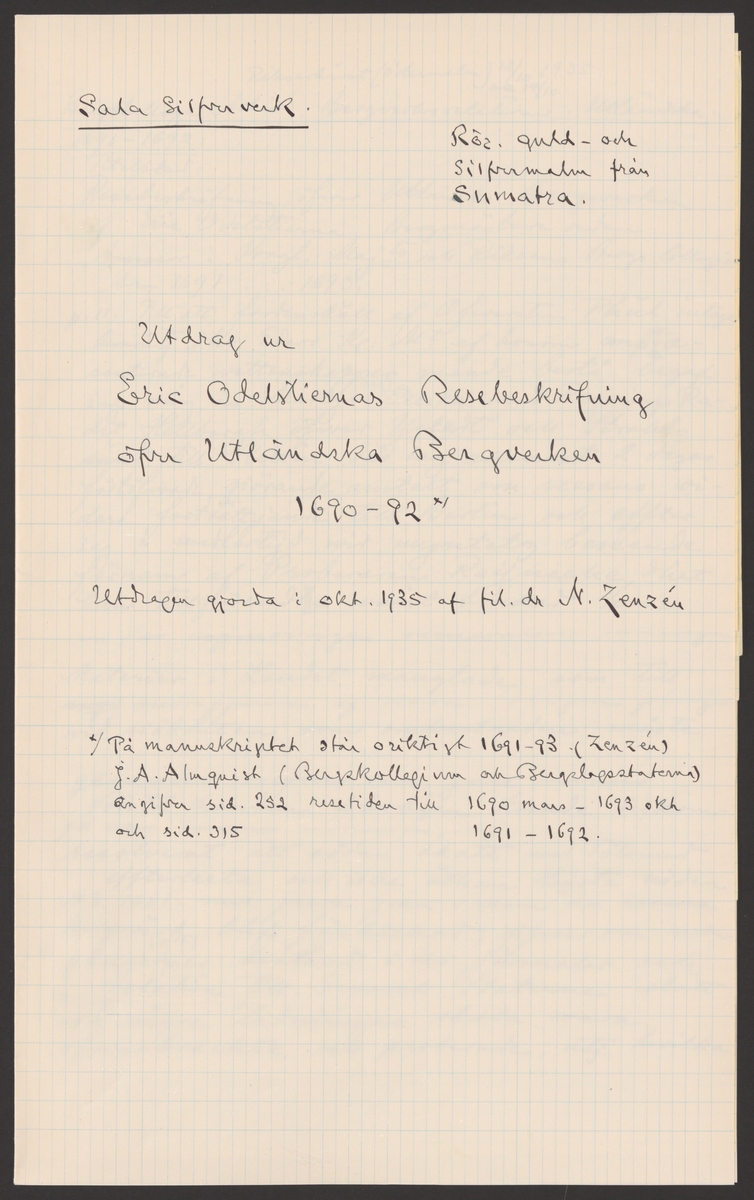 Sala Silfververk.
Rör. guld- och
Silfvermalm från
Sumatra.
Utdrag ur
Eric Odelstiernas Resebeskrifning
öfver Utländska Bergverken
1690-92 x/
Utdragen gjorda i okt. 1935 af fil. dr N. Zenzén
x/ På manuskriptet står oriktigt 1691-93. (Zenzén)
J. A. Almquist (Bergskollegium och Bergslagsstaterna)
angifver sid. 252 resetiden till 1690 mars - 1693 okt
och sid. 315 1691 - 1692.